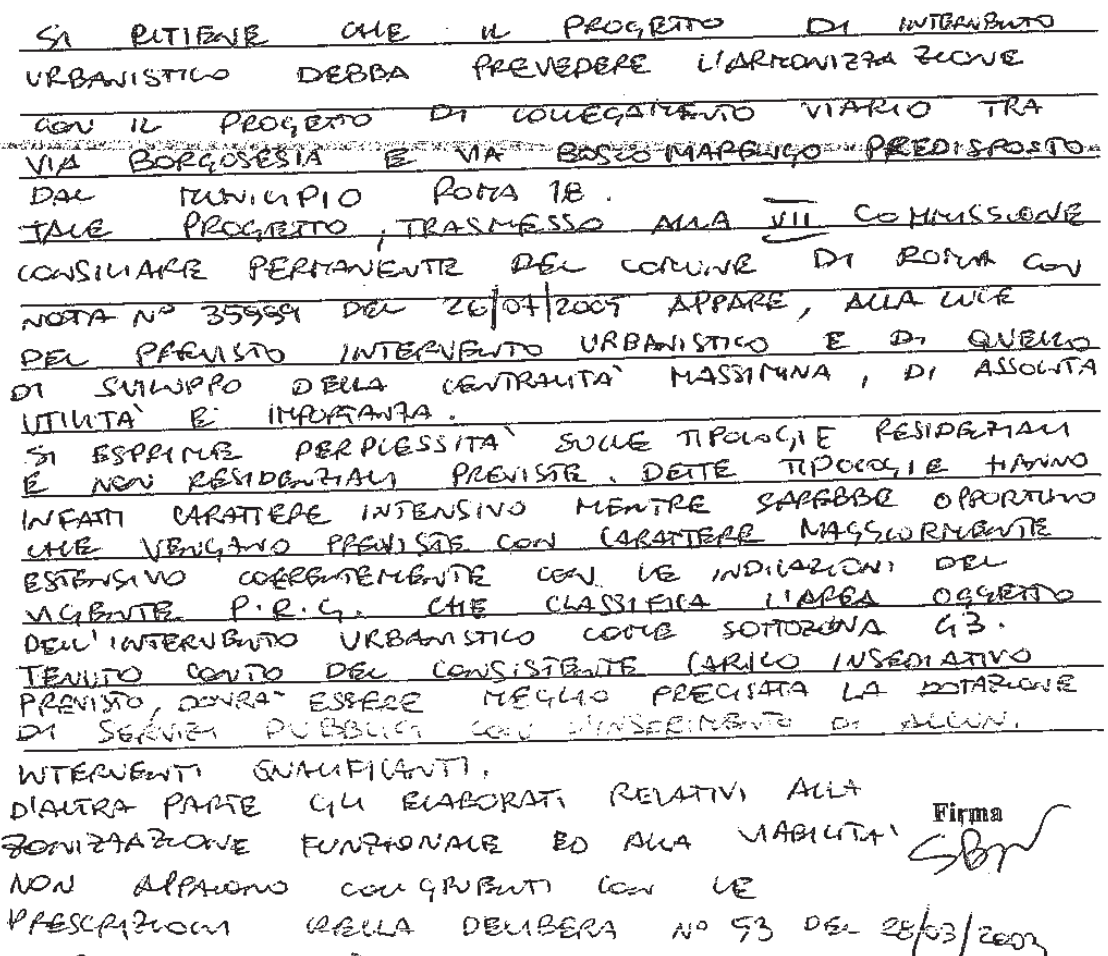 SI RITIENE CHE IL PROGETTO DI INTERVENTO
URBANISTICO DEBBA PREVEDERE L'ARMONIZZAZIONE
CON IL PROGETTO DI COLLEGAMENTO VIARIO TRA
VIA BORGOSESIA E VIA BOSCO MARENGO PREDISPOSTO
DAL MUNICIPIO ROMA 18.
TALE PROGETTO, TRASMESSO ALLA VII COMMISSIONE
CONSILIARE PERMANENTE DEL COMUNE DI ROMA CON
NOTA N° 35999 DEL 26/07/2005 APPARE, ALLA LUCE
DEL PREVISTO INTERVENTO URBANISTICO E DI QUELLO
DI SVILUPPO DELLA CENTRALITA' MASSIMINA, DI ASSOLUTA
UTILITA' E IMPORTANZA.
SI ESPRIME PERPLESSITA' SULLE TIPOLOGIE RESIDENZIALI
E NON RESIDENZIALI PREVISTE. DETTE TIPOLOGIE HANNO
INFATTI CARATTERE INTENSIVO MENTRE SAREBBE OPPORTUNO
CHE VENGANO PREVISTE CON CARATTERE MAGGIORMENTE
ESTENSIVO COERENTEMENTE CON LE INDICAZIONI DEL
VIGENTE P.R.G. CHE CLASSIFICA L'AREA OGGETTO
DELL'INTERVENTO URBANISTICO COME SOTTOZONA G3.
TENUTO CONTO DEL CONSISTENTE CARICO INSEDIATIVO
PREVISTO, DOVRA' ESSERE MEGLIO PRECISATA LA DOTAZIONE
DI SERVIZI PUBBLICI CON L'INSERIMENTO DI ALCUNI
INTERVENTI QUALIFICANTI.
D'ALTRA PARTE GLI ELABORATI RELATIVI ALLA
ZONIZZAZIONE FUNZIONALE ED ALLA VIABILITA'
Firma
NON APPAIONO CONGRUENTI CON LE
PRESCRIZIONI DELLA DELIBERA N° 53 DEL 28/03/2003